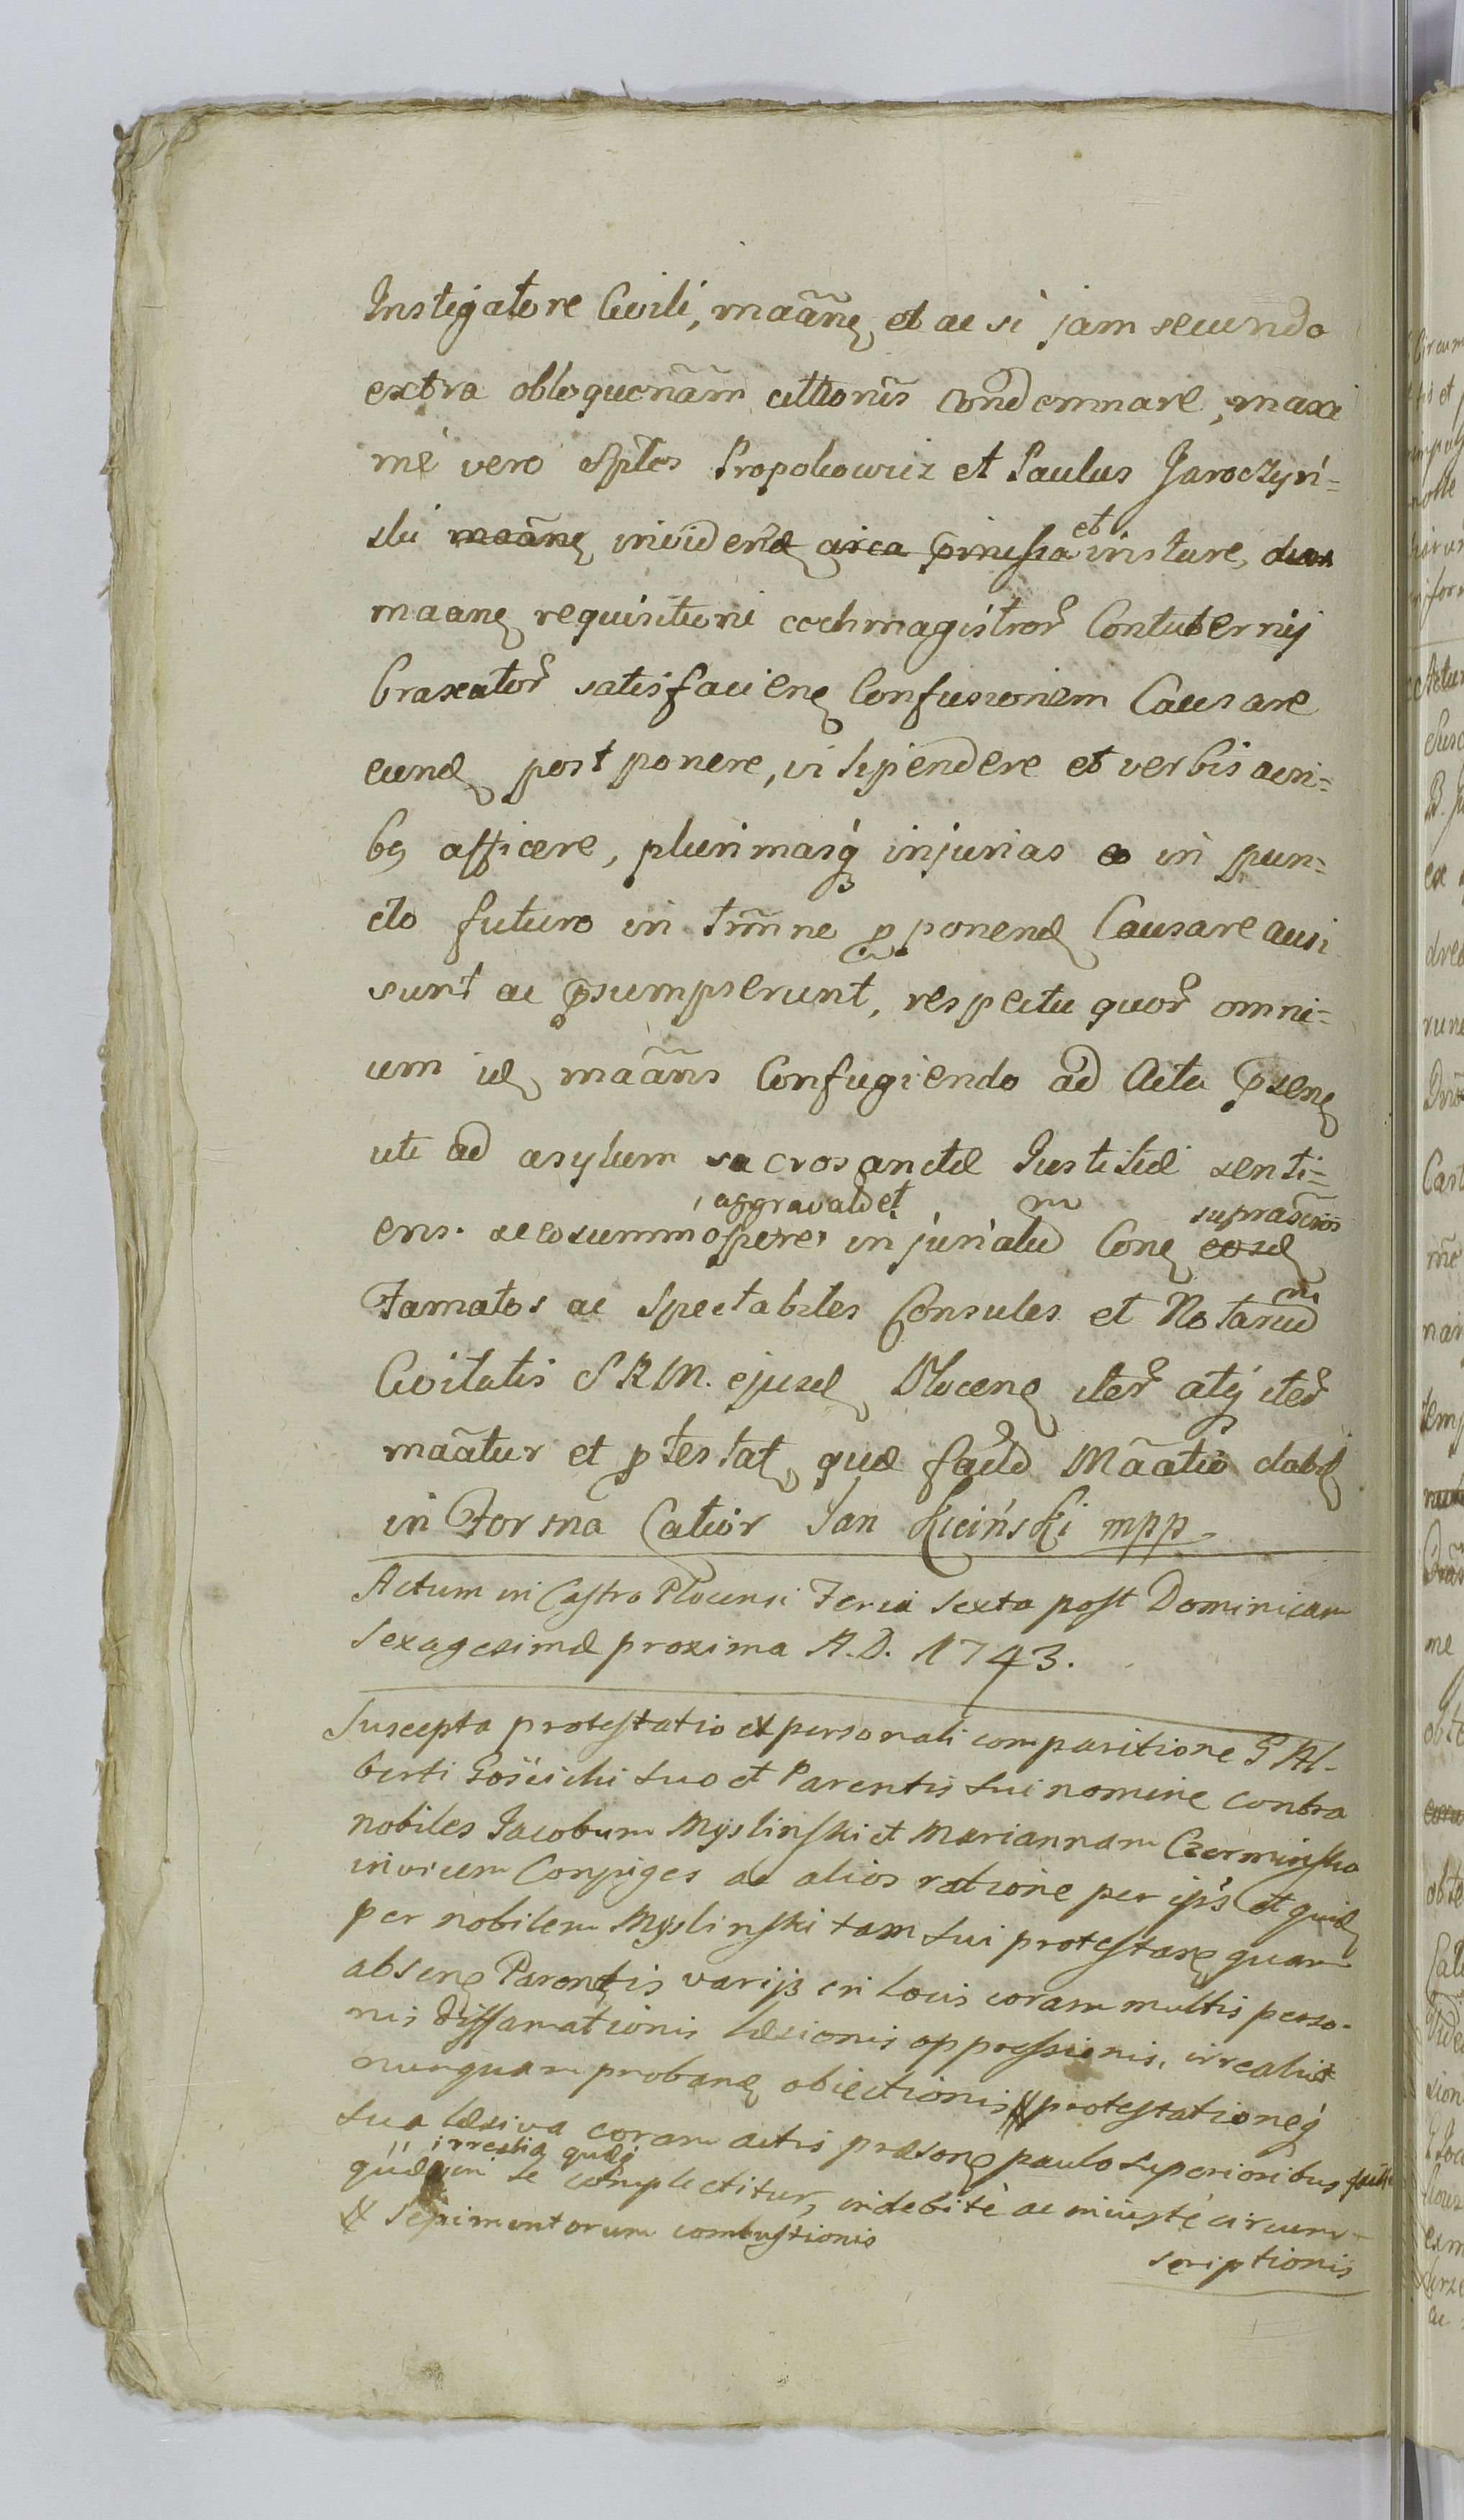 Instigatore Civili, maãnẽ et ac si jam secundo
extra obloquenãm citionis condemnare, maxi
mé vero sples Propolcowicz et Paulus Jaroczyń=
ski maãnẽ invidend circa pmissa et instare, dum
maanẽ requisitioni cechmagistror Contubernij
braxator satisfacienẽ Confusionem Causare
eund postponere, vilipendere et verbis acri=
bg afficere, plurimasq injurias eo in pun=
cto futuro in tmne pponend Causare ausi
sunt ac psumpserunt, respectu quor omni=
um id maãns Confugiendo ad Acta psenẽ
uti ad asylum sacrosanctæ Justitiæ senti=
ens se eo summopere aggravatu et injuriatum Conẽ eosd suprascros
Famatos ac Spectabiles Consules et Notarium
Civitatis S R M. ejusd Plocenẽ iter atq iter
maãtur et ptestat, quæ facta Maãtio dabit
in Forma Catior Jan Kiciński mpp
Actum in Castro Plocensi Feria Sexta post Dominicam
Sexagesimæ proxima A.D. 1743.
Suscepta protestatio ex personali comparitione G Al-
berti Gościcki suo et Parentis sui nomine contra
nobiles Jacobum Myslinski et Mariannam Czerminska
invicem Conjuges ac alios ratione per ips et quid
per nobilem Myslinski tam sui protestanẽ quam
absenẽ Parentis varijs in locis coram multis perso-
nis diffamationis læsionis oppressionis, irrealis et
nunquam probanđ obiectionis # protestationeq
sua læsiva coram actis præsenẽ paulo superioribus facta
irrealia quæq
quæ in se complectitur, indebitè ac iniustè circum-
# Sepimentorum combustionis
scriptionis